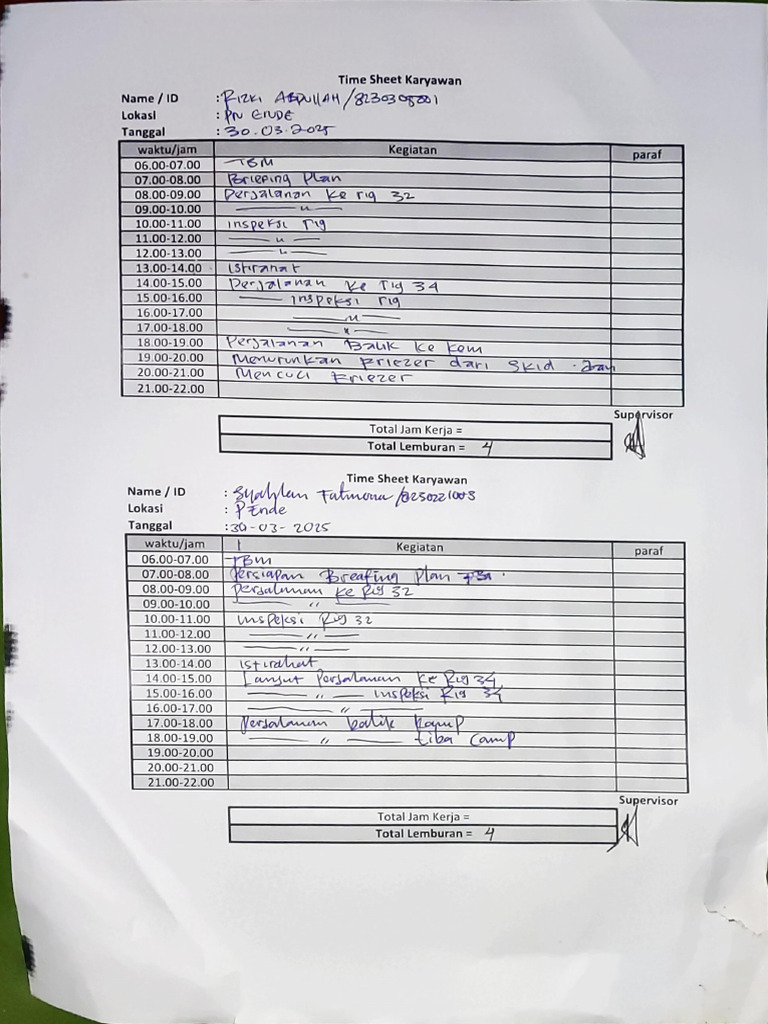 Time Sheet Karyawan
Name / ID : RIZKI ABDULLAH/
Lokasi : PN ENDE
Tanggal : 30.03.2025
waktu/jam Kegiatan paraf
06.00-07.00 TBM
07.00-08.00 Briefing Plan
08.00-09.00 Perjalanan Ke rig 32
09.00-10.00 —— " ——
10.00-11.00 inspeksi rig
11.00-12.00 —— " ——
12.00-13.00 —— " ——
13.00-14.00 istirahat
14.00-15.00 Perjalanan Ke rig 34
15.00-16.00 —— inspeksi rig
16.00-17.00 —— " ——
17.00-18.00 —— " ——
18.00-19.00 Perjalanan Balik Ke Kem
19.00-20.00 Menurunkan Friezer dari Skid
20.00-21.00 Mencuci Friezer
21.00-22.00
Supervisor
Total Jam Kerja =
Total Lemburan = 4
Time Sheet Karyawan
Name / ID : /8250221003
Lokasi : P Ende
Tanggal : 30-03-2025
waktu/jam Kegiatan paraf
06.00-07.00 TBM
07.00-08.00 Persiapan Breafing Plan
08.00-09.00 Persalanan Ke Rig 32
09.00-10.00 —— " ——
10.00-11.00 Inspeksi Rig 32
11.00-12.00 —— " ——
12.00-13.00 —— " ——
13.00-14.00 istirahat
14.00-15.00 Lanjut Persalanan Ke Rig 34
15.00-16.00 —— " —— inspeksi Rig 34
16.00-17.00 —— " ——
17.00-18.00 Persalanan balik Kamp
18.00-19.00 —— " —— tiba Camp
19.00-20.00
20.00-21.00
21.00-22.00
Supervisor
Total Jam Kerja =
Total Lemburan = 4